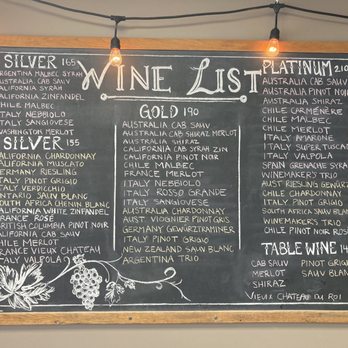 WINE LIST
SILVER 165
ARGENTINA MALBEC SYRAH
AUSTRALIA CAB SAUV
CALIFORNIA SYRAH
CALIFORNIA ZINFANDEL
CHILE MALBEC
ITALY NEBBIOLO
ITALY SANGIOVESE
WASHINGTON MERLOT
SILVER 155
CALIFORNIA CHARDONNAY
CALIFORNIA MUSCAT
GERMANY RIESLING
ITALY PINOT GRIGIO
ITALY VERDICCHIO
ONTARIO SAUV BLANC
SOUTH AFRICA CHENIN BLANC
CALIFORNIA WHITE ZINFANDEL
FRANCE ROSÉ
BRITISH COLUMBIA PINOT NOIR
CALIFORNIA CAB SAUV
CHILE MERLOT
FRANCE VIEUX CHATEAU
ITALY VALPOLA
GOLD 190
AUSTRALIA CAB SAUV
AUSTRALIA CAB SHIRAZ MERLOT
AUSTRALIA SHIRAZ
CALIFORNIA CAB SYRAH ZIN
CALIFORNIA PINOT NOIR
CHILE MALBEC
FRANCE MERLOT
ITALY NEBBIOLO
ITALY ROSSO GRANDE
ITALY SANGIOVESE
AUSTRALIA CHARDONNAY
AUST. VIOGNIER PINOT GRIS
GERMANY GEWÜRZTRAMINER
ITALY PINOT GRIGIO
NEW ZEALAND SAUV BLANC
ARGENTINA TRIO
PLATINUM 210
AUSTRALIA CAB SAUV
AUSTRALIA PINOT NOIR
AUSTRALIA SHIRAZ
CHILE CARMÉNÈRE
CHILE MALBEC
CHILE MERLOT
ITALY AMARONE
ITALY SUPER TUSCAN
ITALY VALPOLA
SPAIN GRENACHE SYRAH
WINEMAKER'S TRIO
AUST RIESLING GEWURZ
CHILE CHARDONNAY
ITALY PINOT GRIGIO
SOUTH AFRICA SAUV BLANC
WINEMAKERS TRIO
CHILE PINOT NOIR ROSÉ
TABLE WINE 14
CAB SAUV PINOT GRIGIO
MERLOT SAUV BLANC
SHIRAZ
VIEUX CHATEAU DU ROI